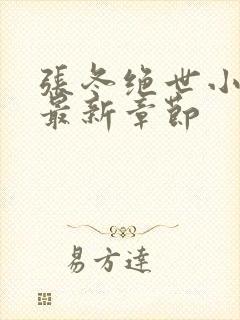 張冬绝世小
最新章節
易方達